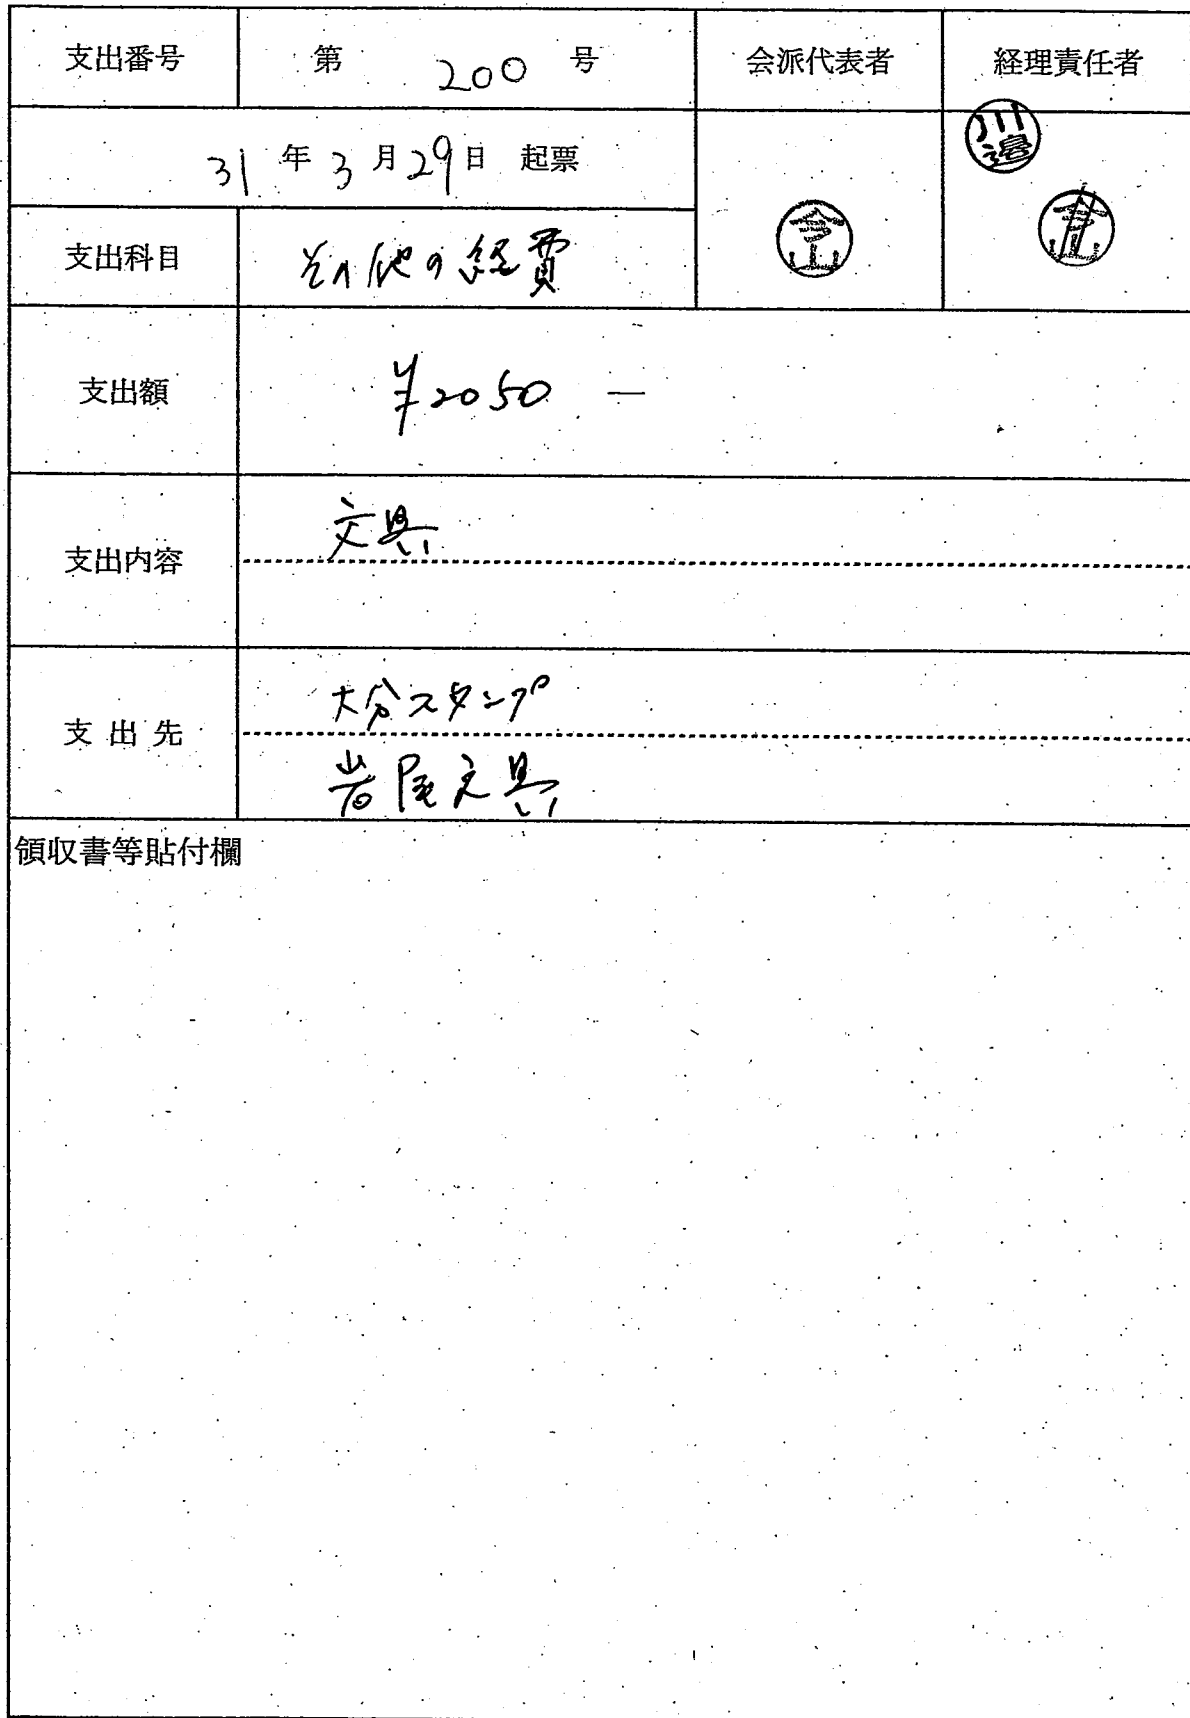 支出番号 第 200 号 会派代表者 経理責任者
川邉
31年3月29日 起票
今山
今山
支出科目 その他の経費
支出額 ¥2050 —
支出内容 文具
支出先 大分スタンプ
岩尾文具
領収書等貼付欄